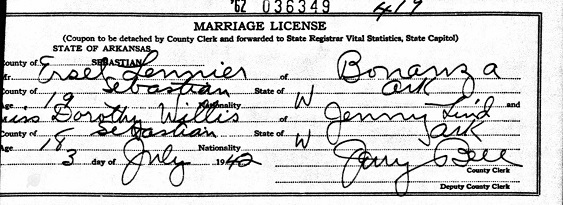 '62 036349 419
MARRIAGE LICENSE
(Coupon to be detached by County Clerk and forwarded to State Registrar Vital Statistics, State Capitol)
STATE OF ARKANSAS
County of SEBASTIAN
Mr. Ersel Lennier of Bonanza
County of Sebastian State of Ark
Age 19 Nationality W and
Miss Dorothy Willis of Jenny Lind
County of Sebastian State of Ark
Age 18 Nationality W
3 day of July 1942 Jerry Bell
County Clerk
Deputy County Clerk